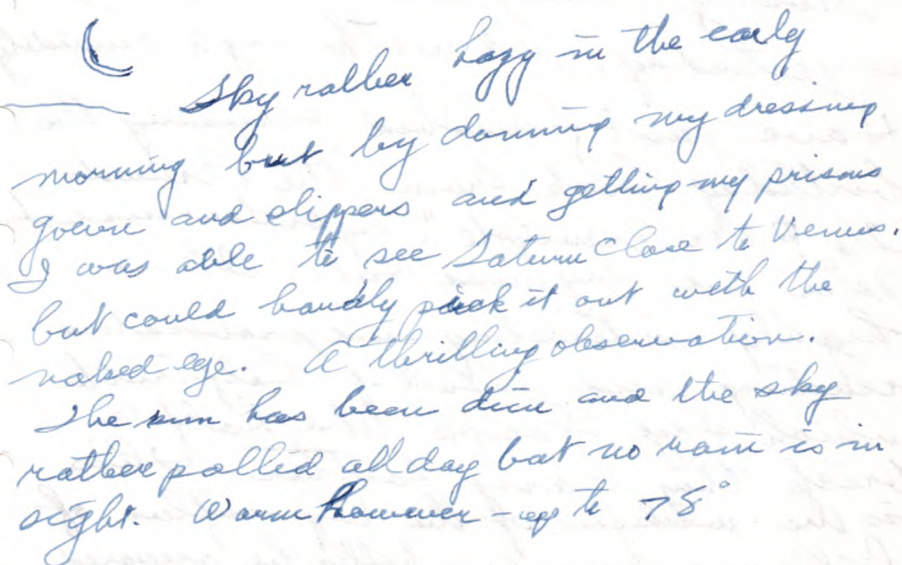 Sky rather hazy in the early
morning but by donning my dressing
gown and slippers and getting my prisms
I was able to see Saturn close to Venus.
but could hardly pick it out with the
naked eye. A thrilling observation.
The sun has been dim and the sky
rather palled all day but no rain is in
sight. Warm however - up to 78°